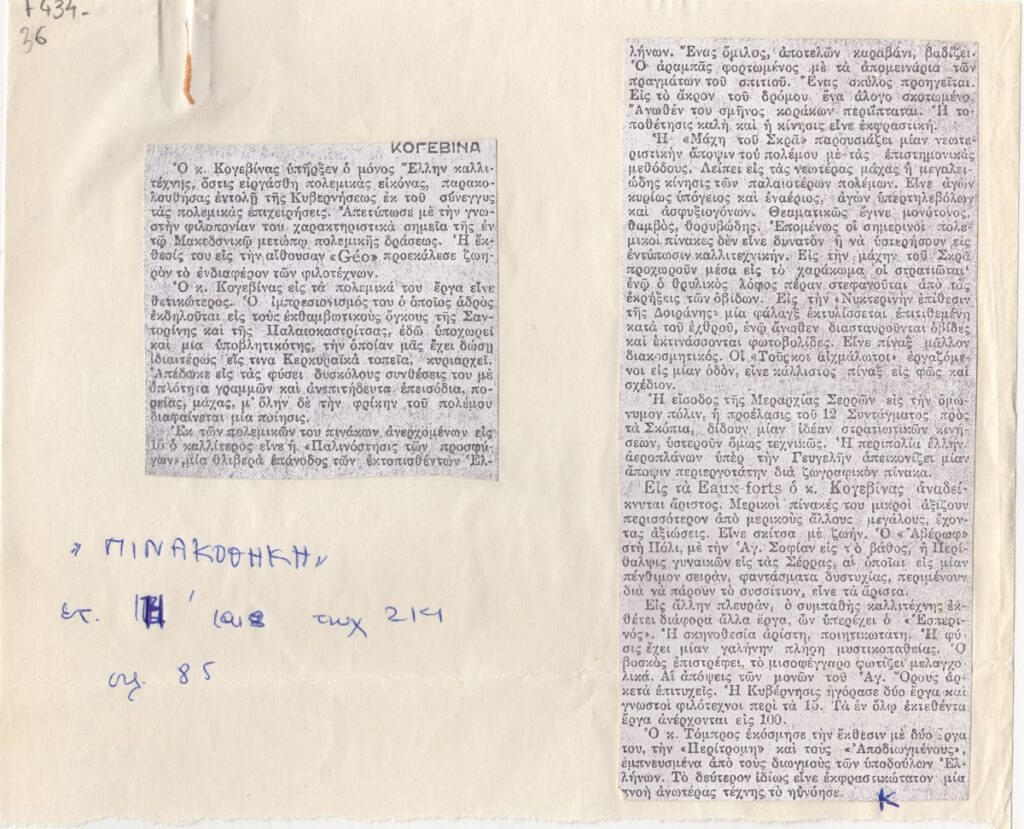 F434-
36
ΚΟΓΕΒΙΝΑ
Ὁ κ. Κογεβίνας ὑπῆρξεν ὁ μόνος Ἕλλην καλλι-
τέχνης, ὅστις εἰργάσθη πολεμικὰς εἰκόνας, παρακο-
λουθήσας ἐντολῇ τῆς Κυβερνήσεως ἐκ τοῦ σύνεγγυς
τὰς πολεμικὰς ἐπιχειρήσεις. Ἀπετύπωσε μὲ τὴν γνω-
στὴν φιλοπονίαν του χαρακτηριστικὰ σημεῖα τῆς ἐν
τῷ Μακεδονικῷ μετώπῳ πολεμικῆς δράσεως. Ἡ ἔκ-
θεσίς του εἰς τὴν αἴθουσαν «Géo» προεκάλεσε ζωη-
ρὸν τὸ ἐνδιαφέρον τῶν φιλοτέχνων.
Ὁ κ. Κογεβίνας εἰς τὰ πολεμικά του ἔργα εἶνε
θετικώτερος. Ὁ ἐμπρεσιονισμός του ὁ ὁποῖος ἁδρὸς
ἐκδηλοῦται εἰς τοὺς ἐκθαμβωτικοὺς ὄγκους τῆς Σαν-
τορίνης καὶ τῆς Παλαιοκαστρίτσας, ἐδῶ ὑποχωρεῖ
καὶ μία ὑποβλητικότης, τὴν ὁποίαν μᾶς ἔχει δώσῃ
ἰδιαιτέρως εἴς τινα Κερκυραϊκὰ τοπεῖα, κυριαρχεῖ.
Ἀπέδωκε εἰς τὰς φύσει δυσκόλους συνθέσεις του μὲ
ἁπλότητα γραμμῶν καὶ ἀνεπιτήδευτα ἐπεισόδια, πο-
ρείας, μάχας, μ' ὅλην δὲ τὴν φρίκην τοῦ πολέμου
διαφαίνεται μία ποίησις.
Ἐκ τῶν πολεμικῶν του πινάκων ἀνερχομένων εἰς
15 ὁ καλλίτερος εἶνε ἡ «Παλινόστησις τῶν προσφύ-
γων», μία θλιβερὰ ἐπάνοδος τῶν ἐκτοπισθέντων Ἑλ-
λήνων. Ἕνας ὅμιλος, ἀποτελῶν καραβάνι, βαδίζει.
Ὁ ἀραμπᾶς φορτωμένος μὲ τὰ ἀπομεινάρια τῶν
πραγμάτων τοῦ σπιτιοῦ. Ἕνας σκύλος προηγεῖται.
Εἰς τὸ ἄκρον τοῦ δρόμου ἕνα ἄλογο σκοτωμένο.
Ἄνωθέν του σμῆνος κοράκων περιΐπταται. Ἡ το-
ποθέτησις καλὴ καὶ ἡ κίνησις εἶνε ἐκφραστική.
Ἡ «Μάχη τοῦ Σκρᾶ» παρουσιάζει μίαν νεωτε-
ριστικὴν ἄποψιν τοῦ πολέμου μὲ τὰς ἐπιστημονικὰς
μεθόδους. Λείπει εἰς τὰς νεωτέρας μάχας ἡ μεγαλει-
ώδης κίνησις τῶν παλαιοτέρων πολέμων. Εἶνε ἀγὼν
κυρίως ὑπόγειος καὶ ἐναέριος, ἀγὼν ὑπερτηλεβόλων
καὶ ἀσφυξιογόνων. Θεαματικῶς ἔγινε μονότονος,
θαμβός, θορυβώδης. Ἑπομένως οἱ σημερινοὶ πολε-
μικοὶ πίνακες δὲν εἶνε δυνατὸν ἢ νὰ ὑστερήσουν εἰς
ἐντύπωσιν καλλιτεχνικήν. Εἰς τὴν μάχην τοῦ Σκρᾶ
προχωροῦν μέσα εἰς τὸ χαράκωμα οἱ στρατιῶται
ἐνῷ ὁ θρυλικὸς λόφος πέραν στεφανοῦται ἀπὸ τὰς
ἐκρήξεις τῶν ὀβίδων. Εἰς τὴν «Νυκτερινὴν ἐπίθεσιν
τῆς Δοϊράνης» μία φάλαγξ ἐκτυλίσσεται ἐπιτιθεμένη
κατὰ τοῦ ἐχθροῦ, ἐνῷ ἄνωθεν διασταυροῦνται ὀβίδες
καὶ ἐκτινάσσονται φωτοβολίδες. Εἶνε πίναξ μᾶλλον
διακοσμητικός. Οἱ «Τοῦρκοι αἰχμάλωτοι» ἐργαζόμε-
νοι εἰς μίαν ὁδόν, εἶνε κάλλιστος πίναξ εἰς φῶς καὶ
σχέδιον.
Ἡ εἴσοδος τῆς Μεραρχίας Σερρῶν εἰς τὴν ὁμώ-
νυμον πόλιν, ἡ προέλασις τοῦ 12 Συντάγματος πρὸς
τὰ Σκόπια, δίδουν μίαν ἰδέαν στρατιωτικῶν κινή-
σεων, ὑστεροῦν ὅμως τεχνικῶς. Ἡ περιπολία ἑλλην.
ἀεροπλάνων ὑπὲρ τὴν Γευγελῆν ἀπεικονίζει μίαν
ἄποψιν περιεργοτάτην διὰ ζωγραφικὸν πίνακα.
Εἰς τὰ Eaux-forts ὁ κ. Κογεβίνας ἀναδεί-
κνυται ἄριστος. Μερικοὶ πίνακές του μικροὶ ἀξίζουν
περισσότερον ἀπὸ μερικοὺς ἄλλους μεγάλους, ἔχον-
τας ἀξιώσεις. Εἶνε σκίτσα μὲ ζωήν. Ὁ «Ἀβέρωφ»
στὴ Πόλι, μὲ τὴν Ἁγ. Σοφίαν εἰς τὸ βάθος, ἡ Περί-
θαλψις γυναικῶν εἰς τὰς Σέρρας, αἱ ὁποῖαι εἰς μίαν
πένθιμον σειράν, φαντάσματα δυστυχίας, περιμένουν
διὰ νὰ πάρουν τὸ συσσίτιον, εἶνε τὰ ἄριστα.
Εἰς ἄλλην πλευράν, ὁ συμπαθὴς καλλιτέχνης ἐκ-
θέτει διάφορα ἄλλα ἔργα, ὧν ὑπερέχει ὁ «Ἑσπερι-
νός». Ἡ σκηνοθεσία ἀρίστη, ποιητικωτάτη. Ἡ φύ-
σις ἔχει μίαν γαλήνην πλήρη μυστικοπαθείας. Ὁ
βοσκὸς ἐπιστρέφει, τὸ μισοφέγγαρο φωτίζει μελαγχο-
λικά. Αἱ ἀπόψεις τῶν μονῶν τοῦ Ἁγ. Ὄρους ἀρ-
κετὰ ἐπιτυχεῖς. Ἡ Κυβέρνησις ἠγόρασε δύο ἔργα καὶ
γνωστοὶ φιλότεχνοι περὶ τὰ 15. Τὰ ἐν ὅλῳ ἐκτεθέντα
ἔργα ἀνέρχονται εἰς 100.
Ὁ κ. Τόμπρος ἐκόσμησε τὴν ἔκθεσιν μὲ δύο ἔργα
του, τὴν «Περίτρομη» καὶ τοὺς «Ἀποδιωγμένους»,
ἐμπνευσμένα ἀπὸ τοὺς διωγμοὺς τῶν ὑποδούλων Ἑλ-
λήνων. Τὸ δεύτερον ἰδίως εἶνε ἐκφραστικώτατον μία
πνοὴ ἀνωτέρας τέχνης τὸ ηὐνόησε.
Κ
» ΠΙΝΑΚΟΘΗΚΗ»
ετ. ΙΗ' τευχ 214
σελ. 85